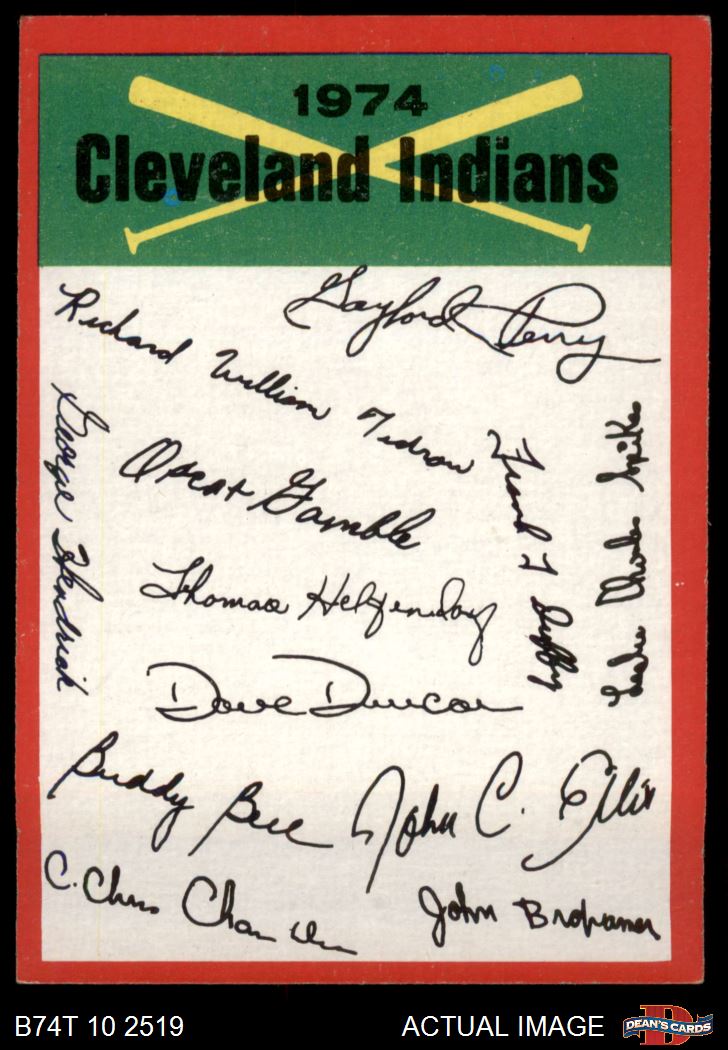 1974
Cleveland Indians
Gaylord Perry
Richard William Tidrow
George Hendrick
Oscar Gamble
Frank T Duffy
Leslie Charles Spikes
Thomas Hilgendorf
Dave Duncan
Buddy Bell
John C. Ellis
C. Chris Chambliss
John Brohamer
B74T 10 2519
ACTUAL IMAGE
D
DEAN'S CARDS